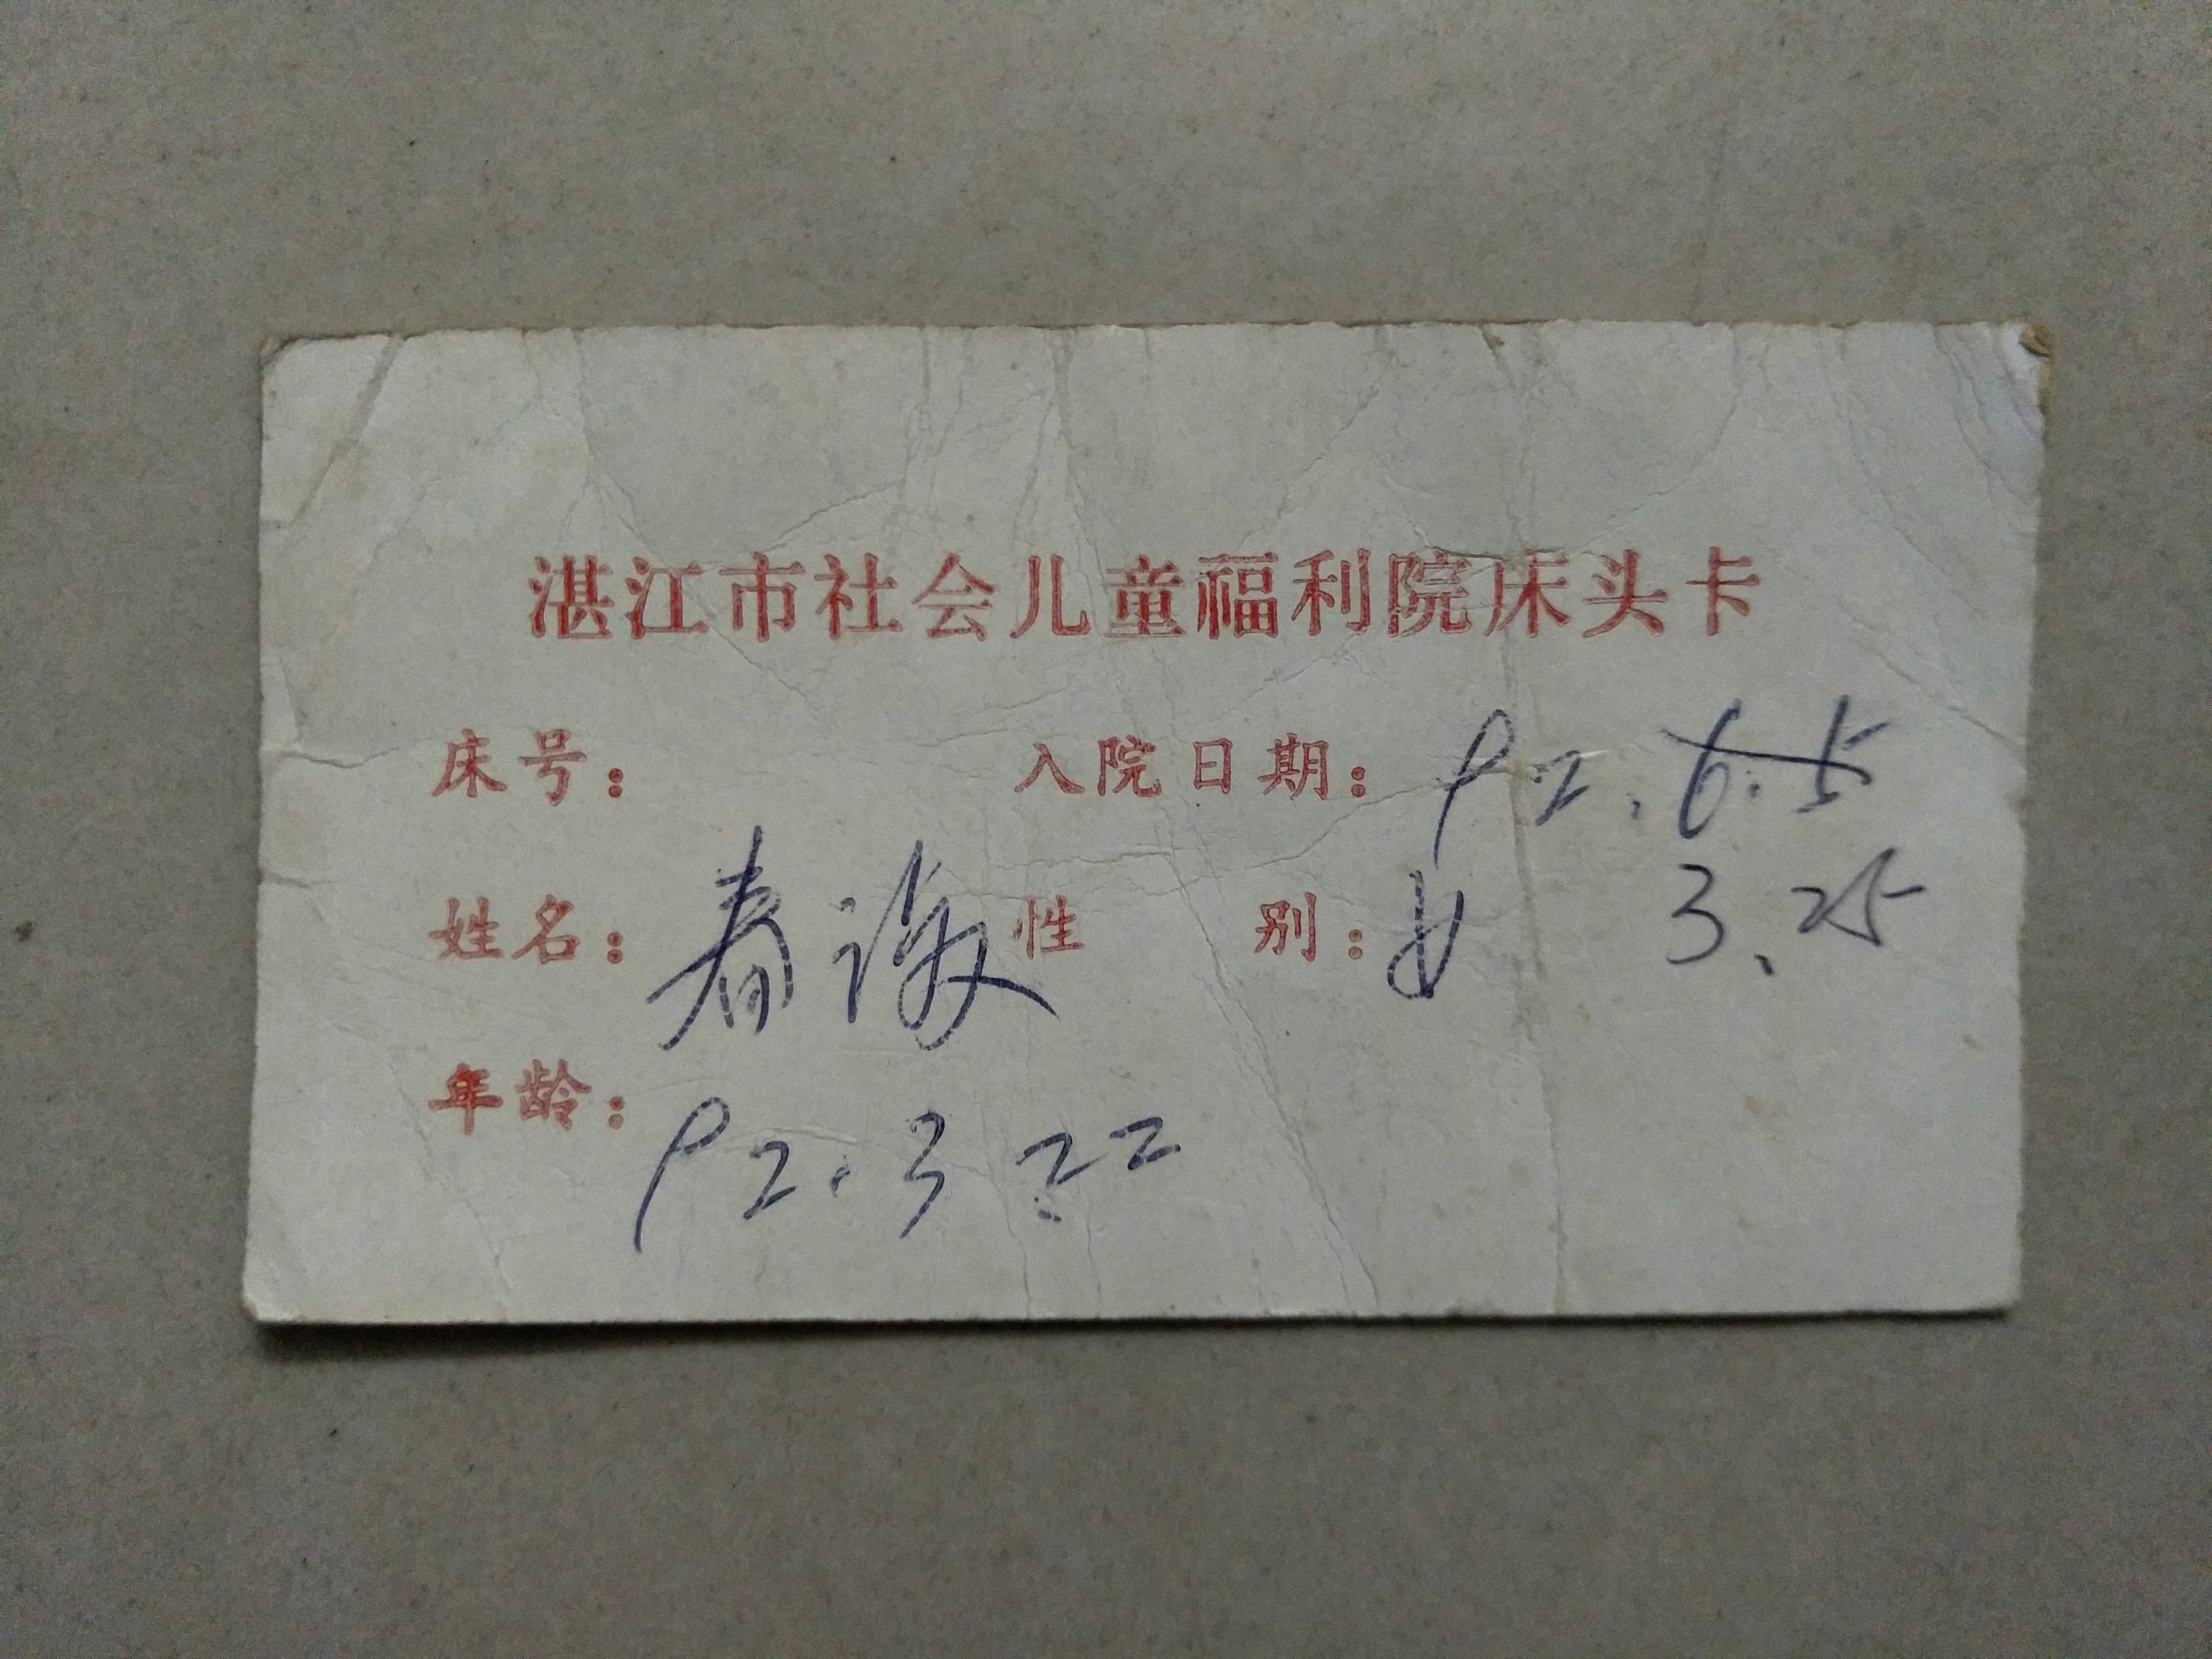 湛江市社会儿童福利院床头卡
床号： 入院日期：92.6.5
3.25
姓名：春 性别：女
年龄：92.3.22